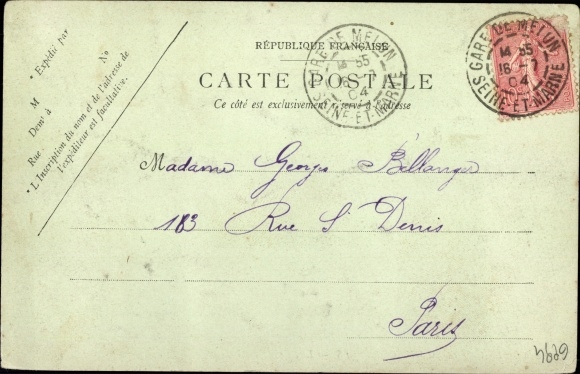 * Expédié par
M
N°
Demt à
Rue
* L'Inscription du nom et de l'adresse de
l'expéditeur est facultative.
RÉPUBLIQUE FRANÇAISE
CARTE POSTALE
Ce côté est exclusivement réservé à l'adresse
GARE DE MELUN
14 35
16 7
04
SEINE-ET-MARNE
GARE DE MELUN
14 35
16 7
04
SEINE-ET-MARNE
Madame Georges Bellanger
183 Rue St Denis
Paris